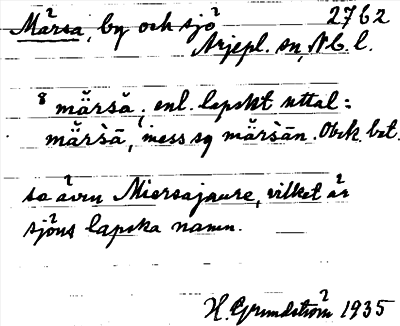 Mårsa, by och sjö 2762
Arjepl. sn, Nb. l.
8 măršă; enl. lapskt uttal:
măršā, iness sg măršān. Obek. bet.
so även Miersajaure, vilket är
sjöns lapska namn.
H. Grundström 1935